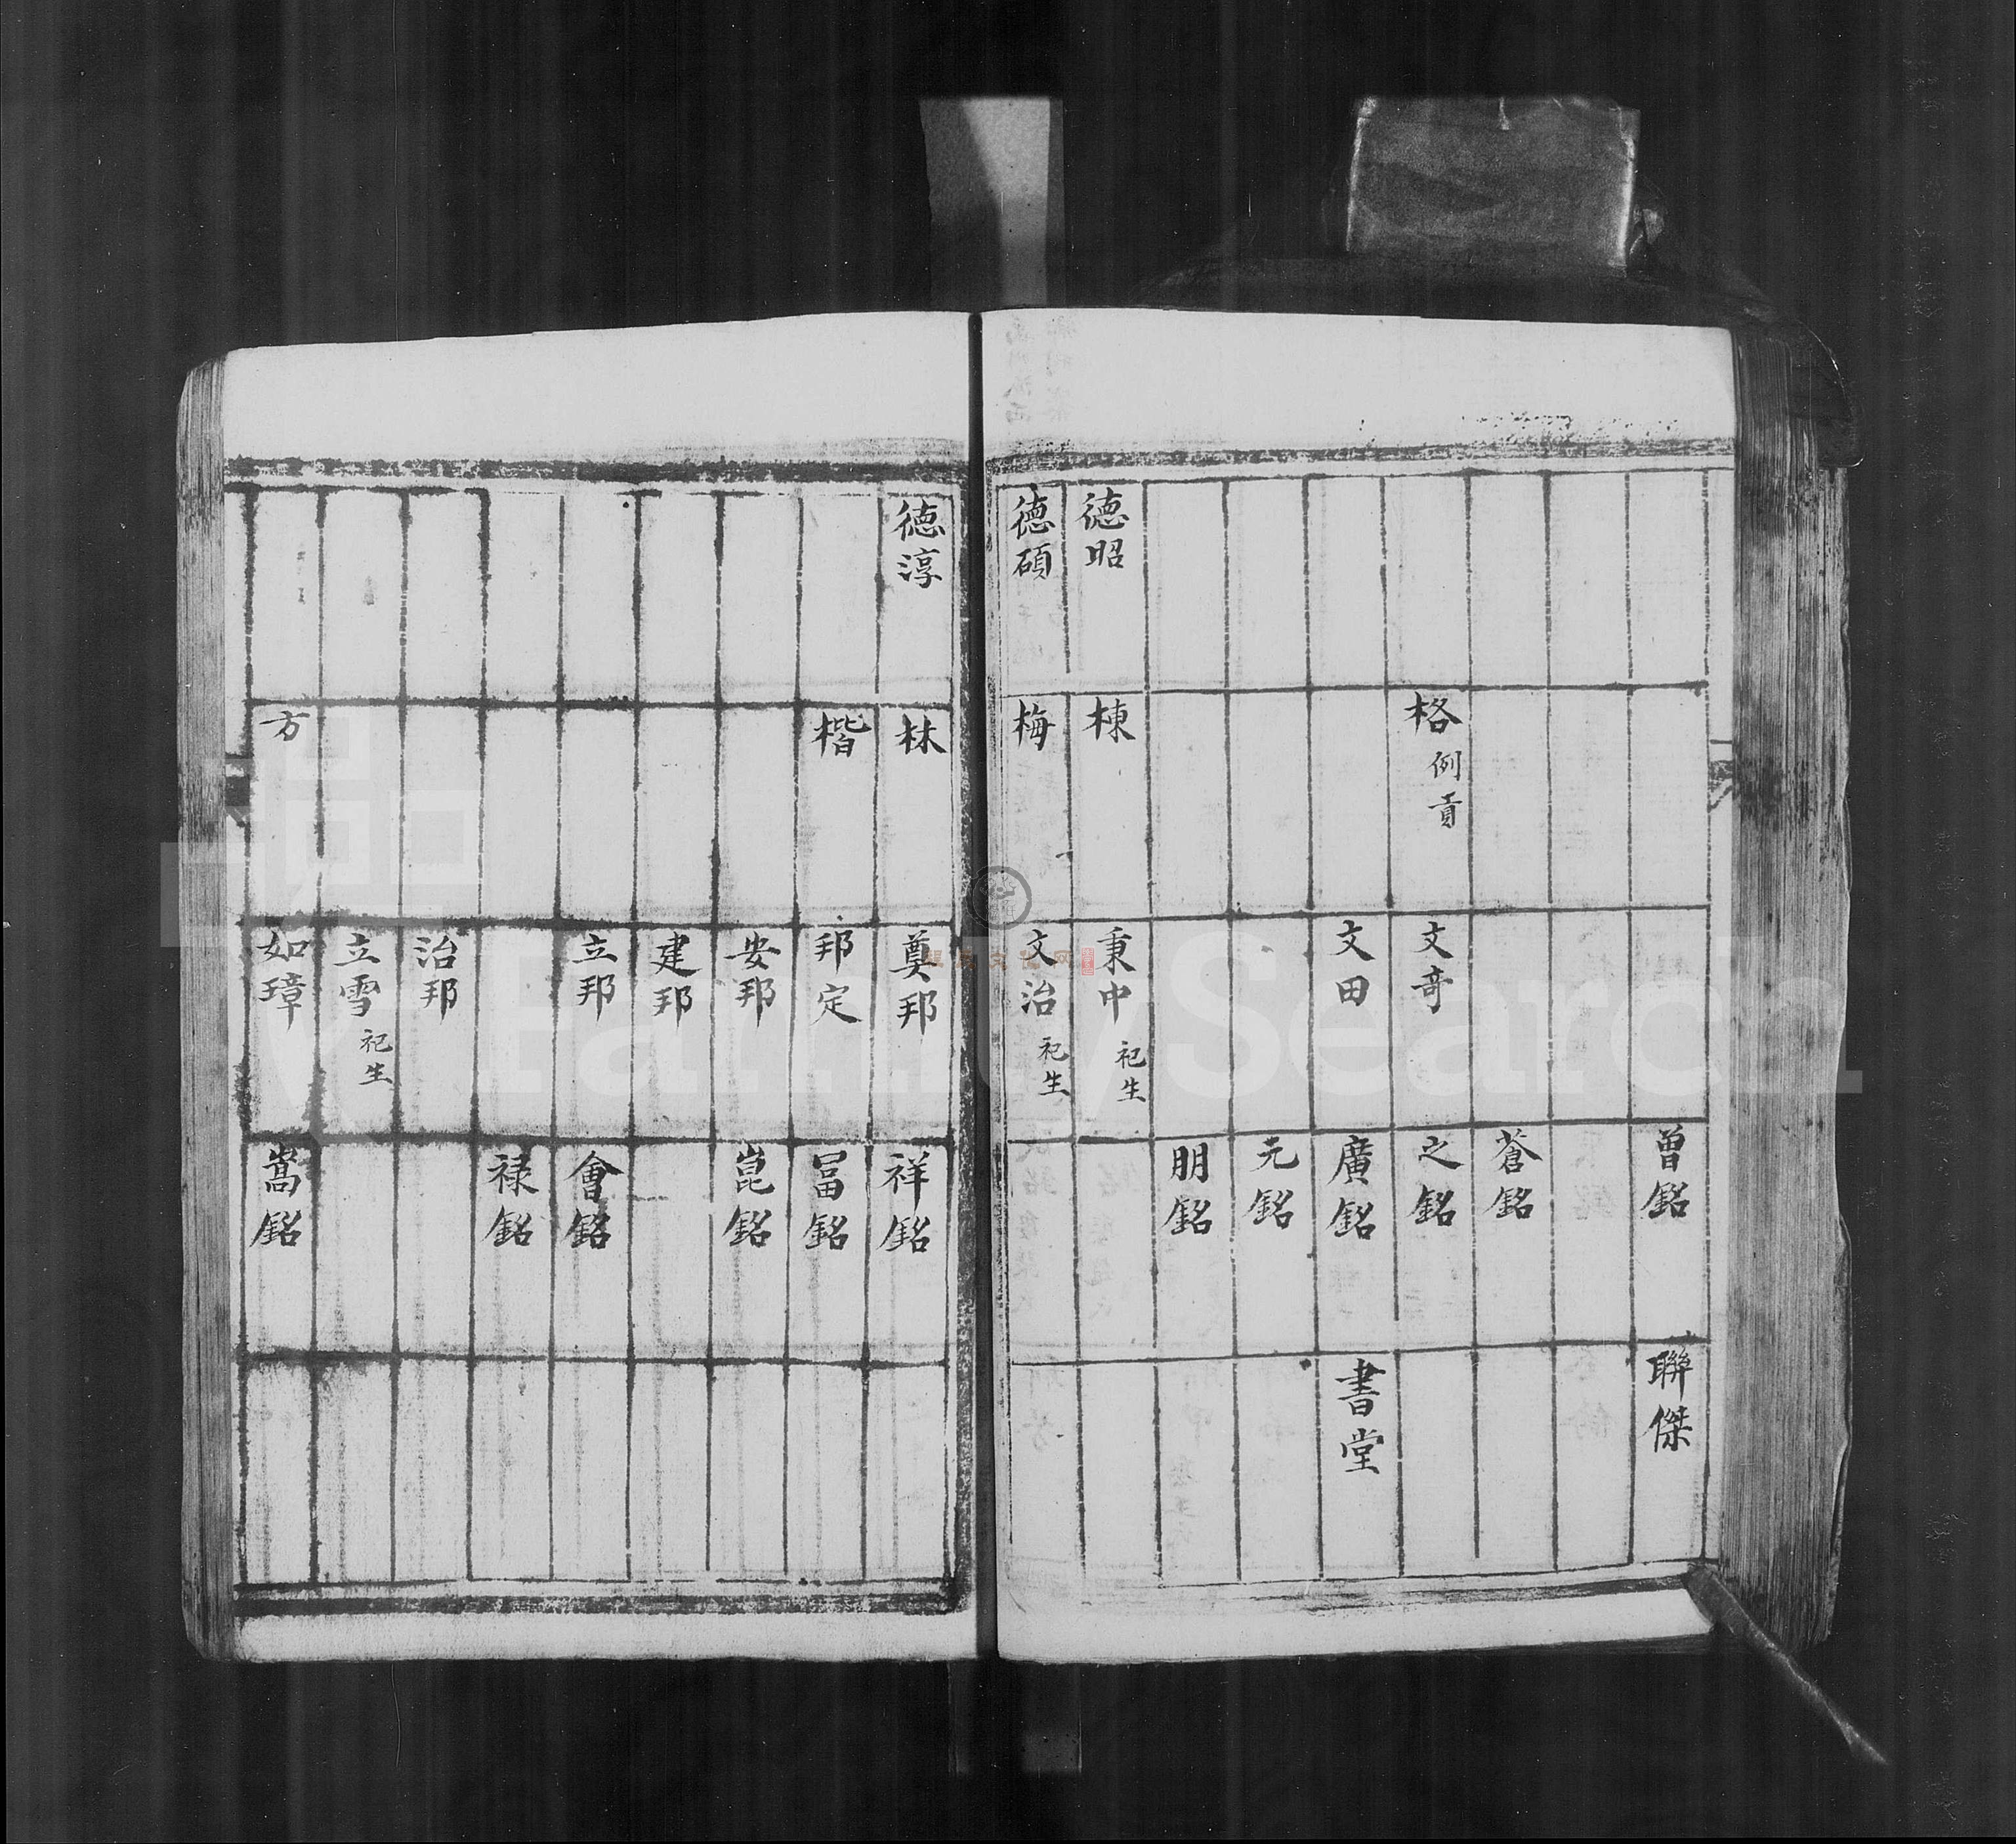 曾銘
聯傑
蒼銘
格 例貢
文奇
之銘
文田
廣銘
書堂
元銘
朋銘
德昭
棟
秉中 祀生
德碩
梅
文治 祀生
德淳
林
奠邦
祥銘
楷
邦定
冨銘
安邦
崑銘
建邦
立邦
會銘
禄銘
治邦
立雪 祀生
方
如璋
嵩銘
FamilySearch